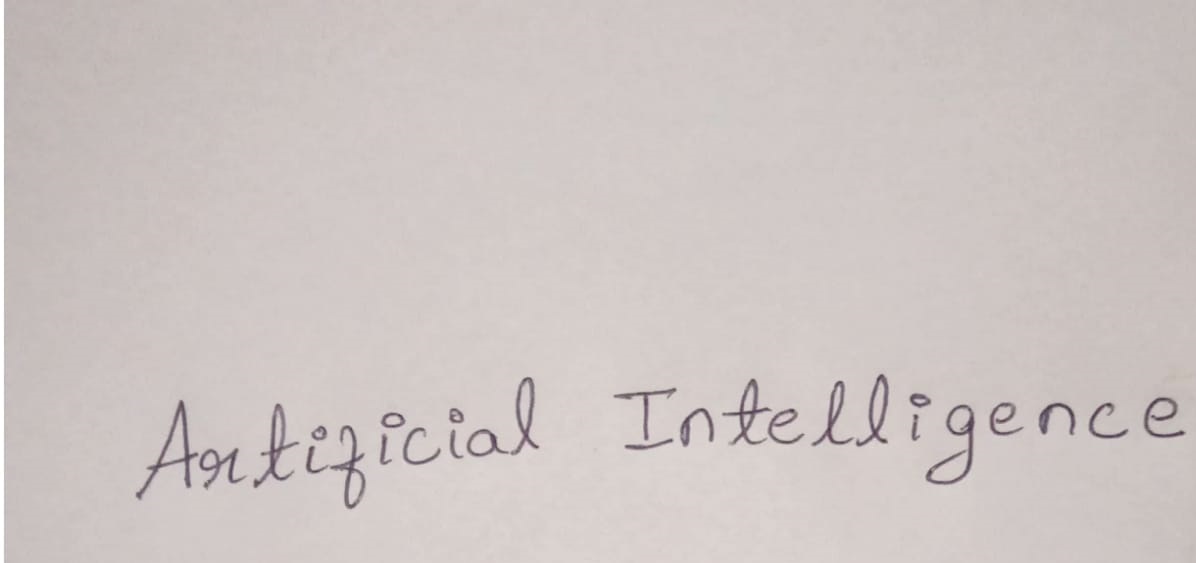 Artificial Intelligence